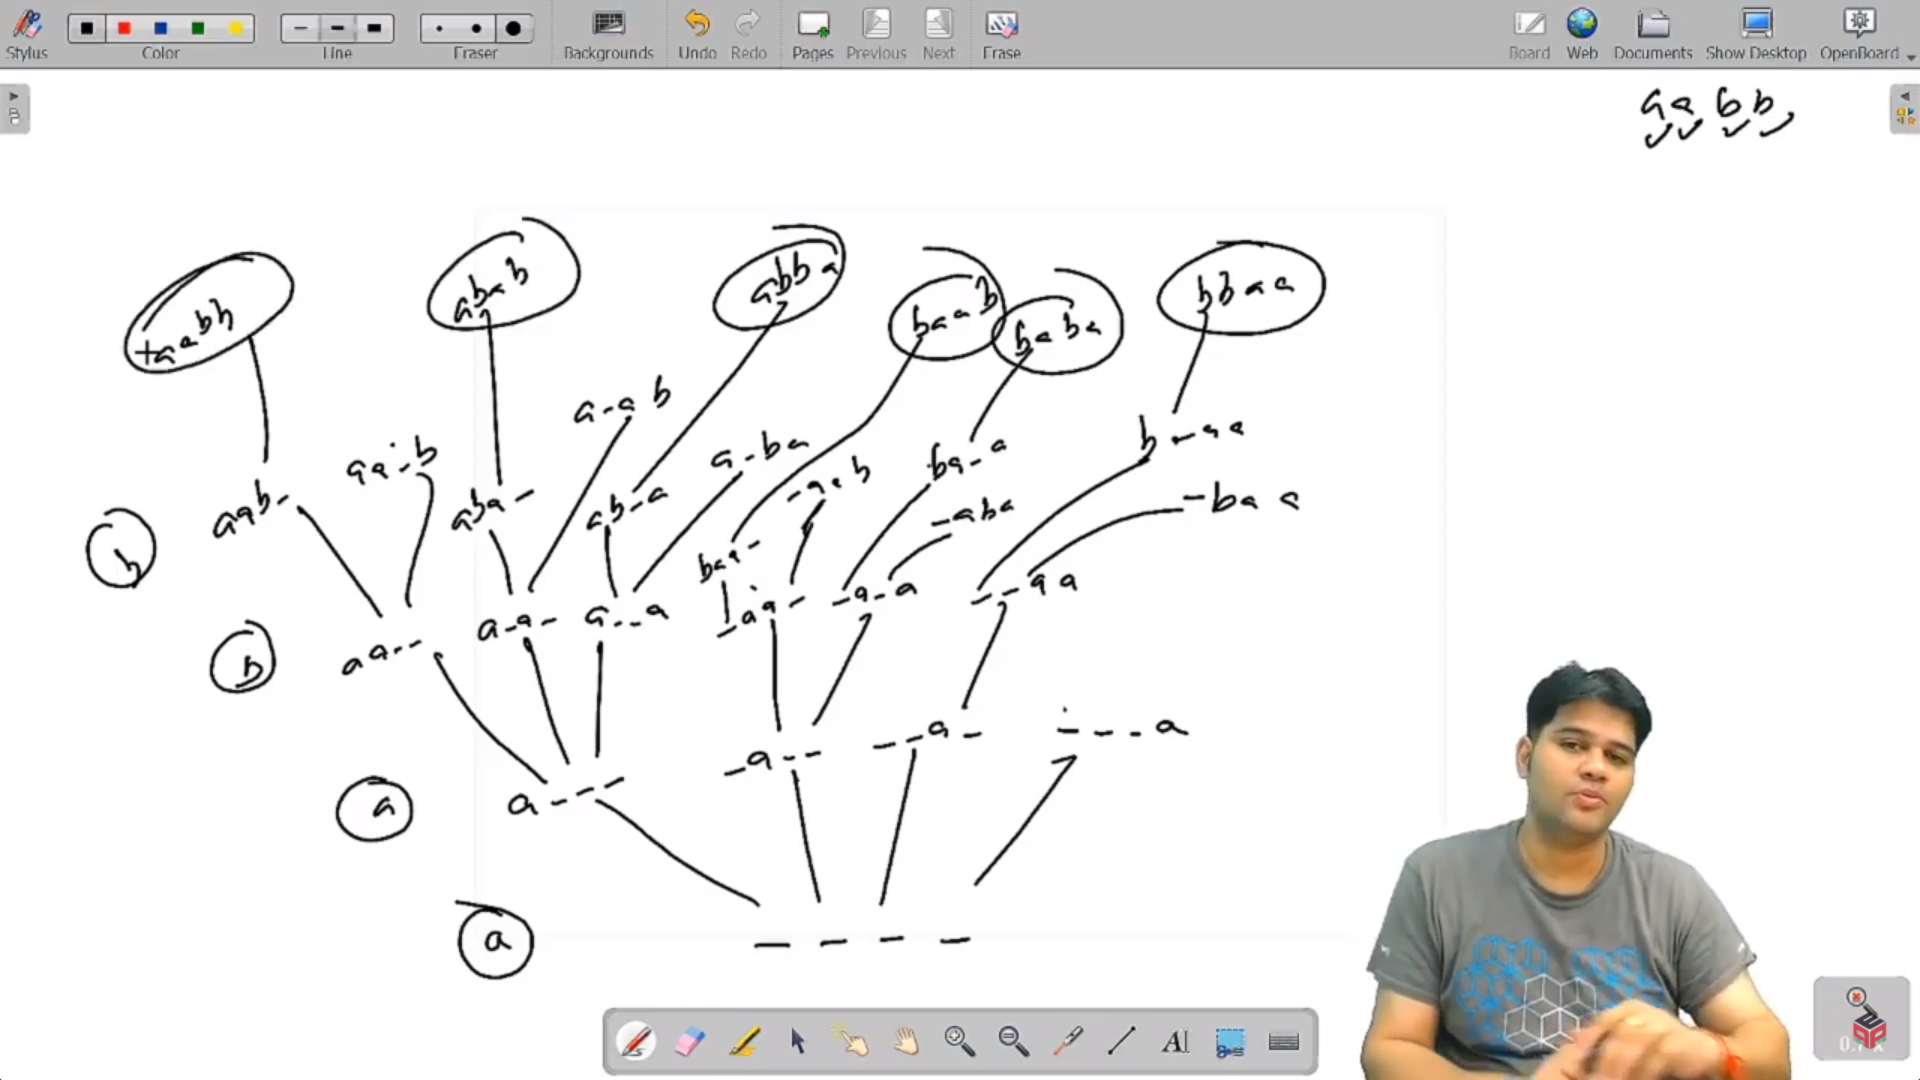 Stylus
Color
Line
Eraser
Backgrounds
Undo
Redo
Pages
Previous
Next
Erase
Board
Web
Documents
Show Desktop
OpenBoard
aabb
aabb
abab
abba
baab
baba
bbaa
a-ab
aa-b
a-ba
-aab
ba-a
b-aa
aab-
aba-
ab-a
baa-
-aba
-baa
b
b
aa--
a-a-
a--a
-aa-
-a-a
--aa
a
a---
-a--
--a-
---a
a
----
AI